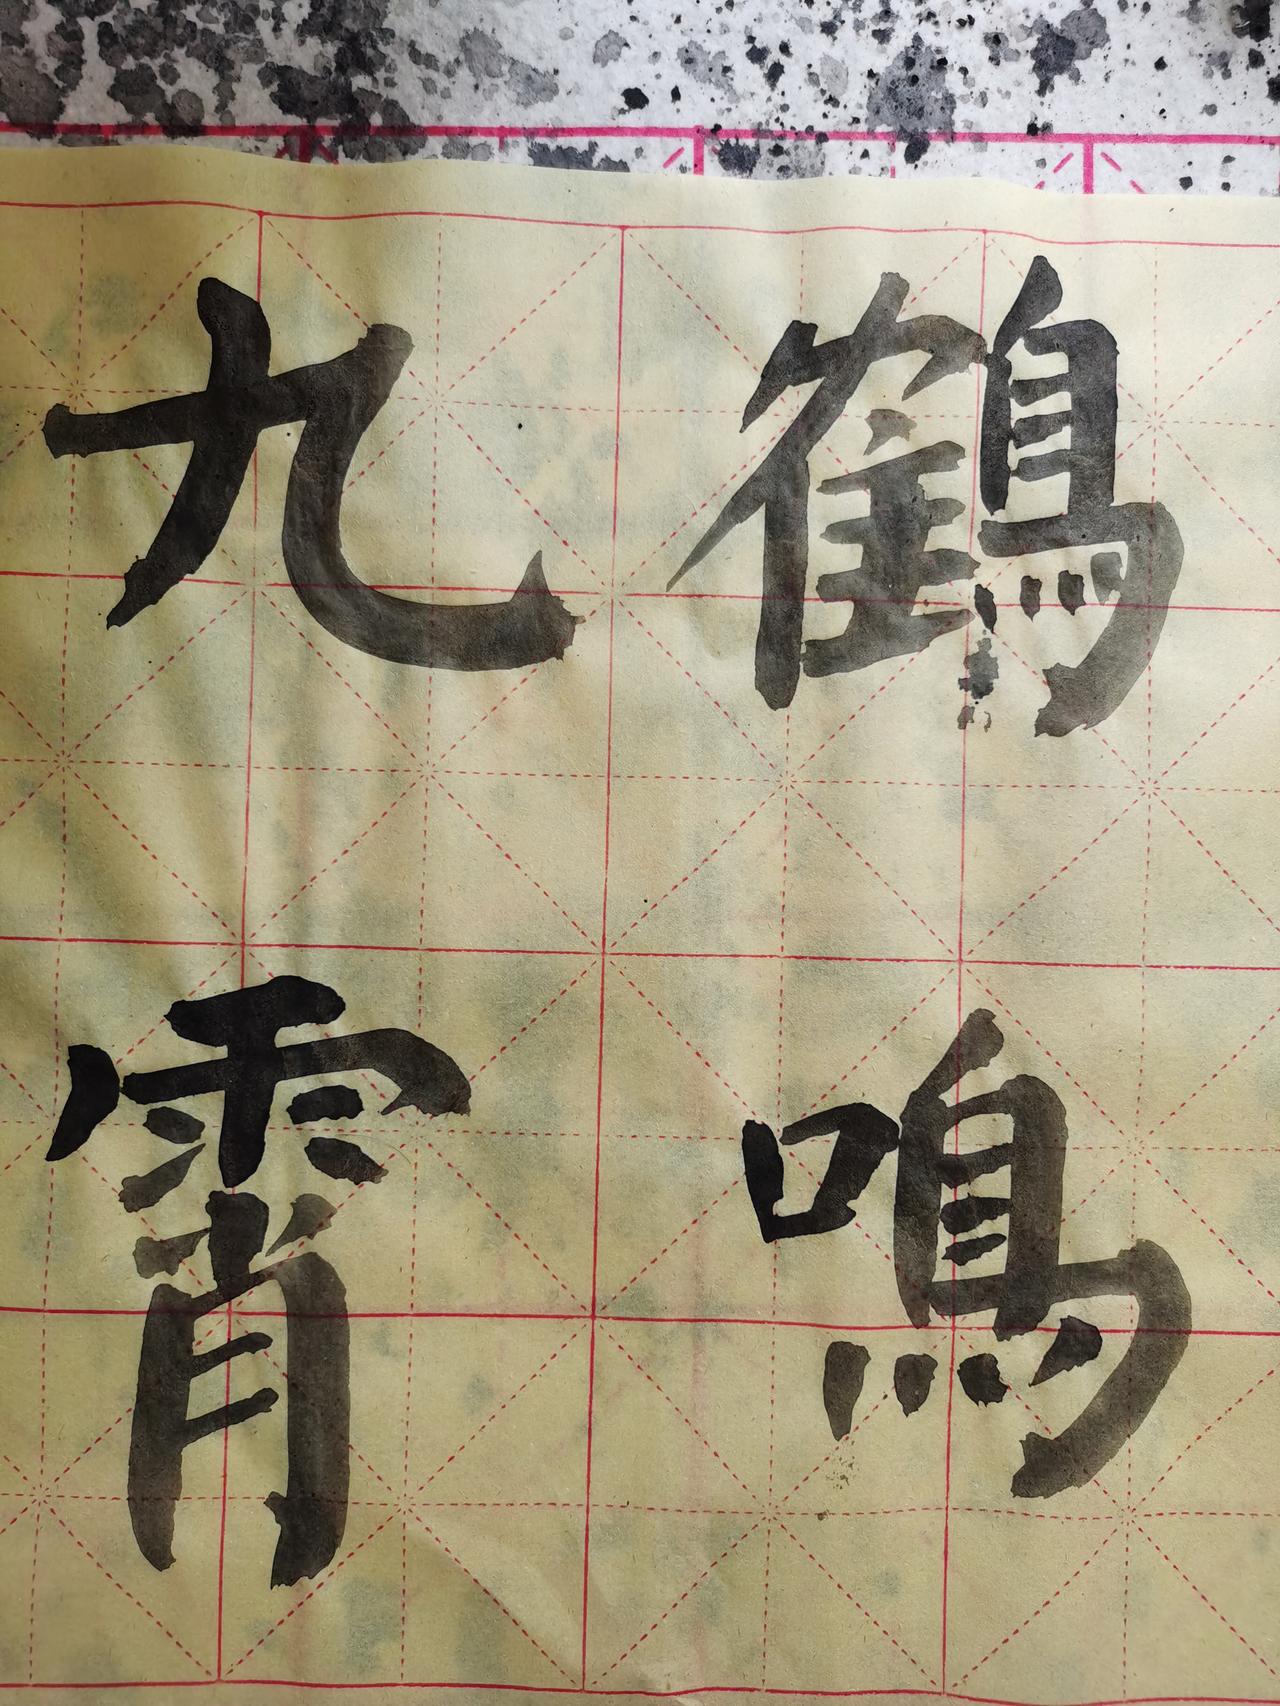 鶴鳴
九霄